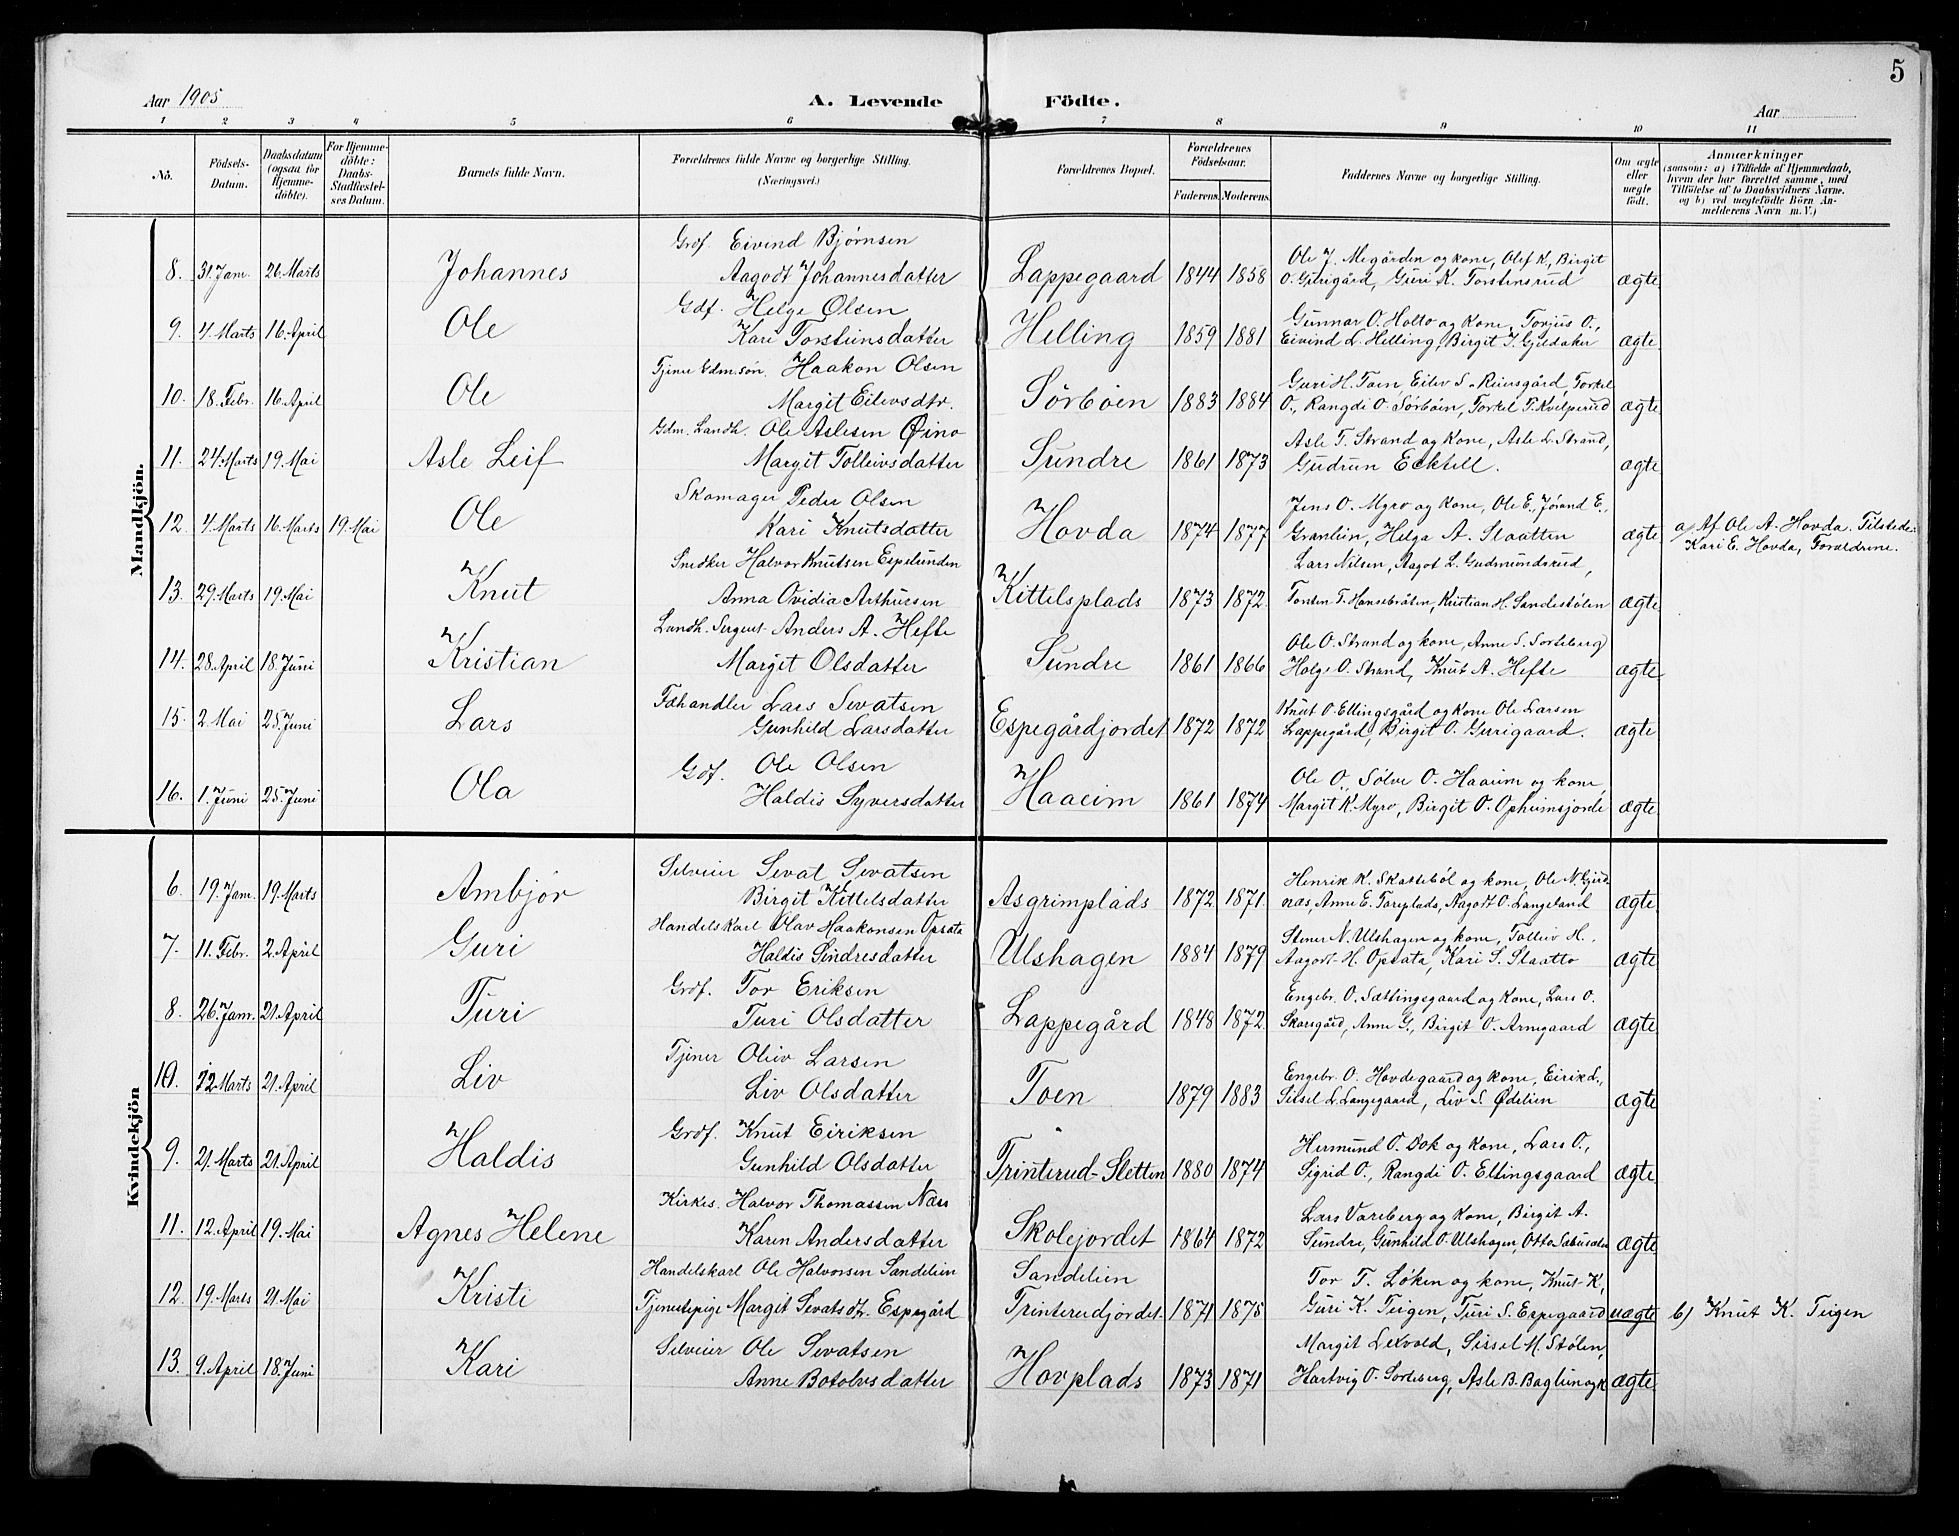 5
Aar 1905
A. Levende
Födte.
Aar
1 2 3 4 5 6 7 8 9 10 11
No.
Födsels-
Datum.
Daabsdatum
(ogsaa for
Hjemme-
döbte).
For Hjemme-
döbte:
Daabs-
Stadfæstel-
ses Datum.
Barnets fulde Navn.
Forældrenes fulde Navne og borgerlige Stilling.
(Næringsvei.)
Forældrenes Bopæl.
Forældrenes
Födselsaar.
Faderens. Moderens.
Faddernes Navne og borgerlige Stilling.
Om ægte
eller
uægte
födt.
Anmærkninger
(saasom: a) i Tilfælde af Hjemmedaab,
hvem der har forrettet samme, med
Tilföielse af to Daabsvidners Navne.
og b) ved uægtefödte Börn An-
melderens Navn m. V.)
Mandkjön.
Grdf. Eivind Bjørnsen
Ole J. Megården og kone, Olef K, Birgit
8. 31. Jan. 26. Marts Johannes Aagodt Johannesdatter Lappegaard 1844 1858 O. Gurigård, Guri K. Torstensrud ægte
Gdf. Helge Olsen
Gunnar O. Holto og kone, Torjus O.,
9. 4. Marts 16. April Ole Kari Torsteinsdatter Helling 1859 1881 Eivind L. Helling, Birgit T. Gjeldaker ægte.
Tjener Gdm.søn. Haakon Olsen
Guri H. Toen Eilev S. Reinsgård, Torkel
10. 18. Febr. 16. April Ole Margit Eilevsdtr. Sørbøen 1883 1884 O., Rangdi O. Sørbøen, Torkel T. Kvelprud ægte
Gdm. Landh. Ole Aslesen Øino
Asle T. Strand og kone, Asle L. Strand,
11. 24. Marts 19. Mai Asle Leif Margit Tolleivsdatter Sundre 1861 1873 Gudrun Ecktell. ægte
Skomager Peder Olsen
Jens O. Myro og kone, Ole E., Jørand E.,
12. 4. Marts 16. Marts 19. Mai Ole Kari Knutsdatter Hovda 1874 1877 Granlien, Helga A. Slaatten ægte a) Af Ole A. Hovda. Tilstede:
Kari E. Hovda, Forældrene.
Snedker Halvor Knutsen Espelunden
Lars Nilsen, Aagot L. Gudmundsrud,
13. 29. Marts 19. Mai Knut Anna Ovidia Arthursen Kittelsplads 1873 1872. Torsten T. Hansebråten, Kristian H. Sandestølen ægte
Landh. Sergent Anders A. Hefte
Ole O. Strand og kone, Anne S. Sorteberg
14. 28. April 18. Juni Kristian Margit Olsdatter Sundre 1861 1866 Helge O. Strand, Knut A. Hefte ægte
Fæhandler Lars Sevatsen
Knut O. Ellingsgård og kone Ole Larsen
15. 2. Mai 25. Juni Lars Gunhild Larsdatter Espegårdjordet 1872 1872 Lappegård, Birgit O. Gurigaard. ægte
Gdf. Ole Olsen
Ole O., Sølve O. Haaeim og kone,
16. 1. Juni 25. Juni Ola Haldis Syversdatter Haaeim 1861 1874 Margit K. Myro, Birgit O. Opheimsjorde ægte
Kvindekjön
Selveier Sevat Sevatsen
Henrik K. Skattebøl og kone, Ole N. Gjed-
6. 19. Jan. 19. Marts Ambjør Birgit Kittelsdatter Asgrimplads 1872 1871. næs, Anne E. Toreplads, Aagodt O. Langeland ægte.
Handelskarl Olav Haakonsen Opsata
Stener N. Ulshagen og kone, Tolleiv H.,
7. 11. Febr. 2. April Guri Haldis Sindresdatter Ulshagen 1884 1879 Aagodt H. Opsata, Kari S. Slaatto ægte
Grdf. Tor Eriksen
Engebr. O. Sættingsgaard og kone, Lars O.
8. 26. Jan. 21. April Turi Turi Olsdatter Lappegård 1848 1872. Skarsgård, Anne G., Birgit O. Arnegaard ægte
Tjener Oleiv Larsen
Engebr. O. Hovdegaard og kone, Eirik L.,
10. 12 Marts 21. April Liv Liv Olsdatter Toen 1879 1883 Sitsel L. Langegaard, Liv S. Ødelien ægte
Grdf. Knut Eiriksen
Hermund O. Dok og kone, Lars O.,
9. 21. Marts 21. April Haldis Gunhild Olsdatter Trinterud-Sletten 1880 1874 Sigrid O., Rangdi O. Ellingsgaard ægte
Kirkes. Halvor Thomassen Næss
Lars Vareberg og kone, Birgit A.
11. 12. April 19. Mai Agnes Helene Karen Andersdatter Skolejordet 1864 1872 Sundre, Gunhild O. Ulshagen, Otto ægte
Handelskarl Ole Halvorsen Sandelien Sandelien
Tor T. Løken og kone, Knut K,
12. 19. Marts 21. Mai Kristi Tjenestepige Margit Sevatsdtr. Espegård Trinterudjordet 1871 1875 Guri K. Teigen, Turi S. Espegaard uægte b) Knut K. Teigen
Selveier Ole Sevatsen
Margit Lexvold, Sissel M. Stølen,
13. 9. April 18. Juni Kari Anne Botolvsdatter Hovplads 1873 1871 Hartvig O. Sorteberg, Asle B. Baglien og k ægte